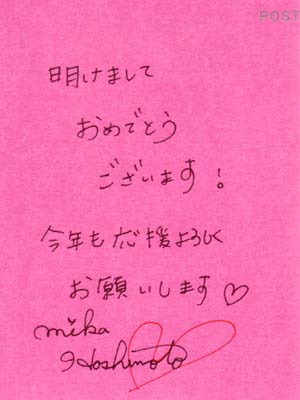 POST
明けまして
おめでとう
ございます!
今年も応援よろしく
お願いします♡
mika
Hoshimoto